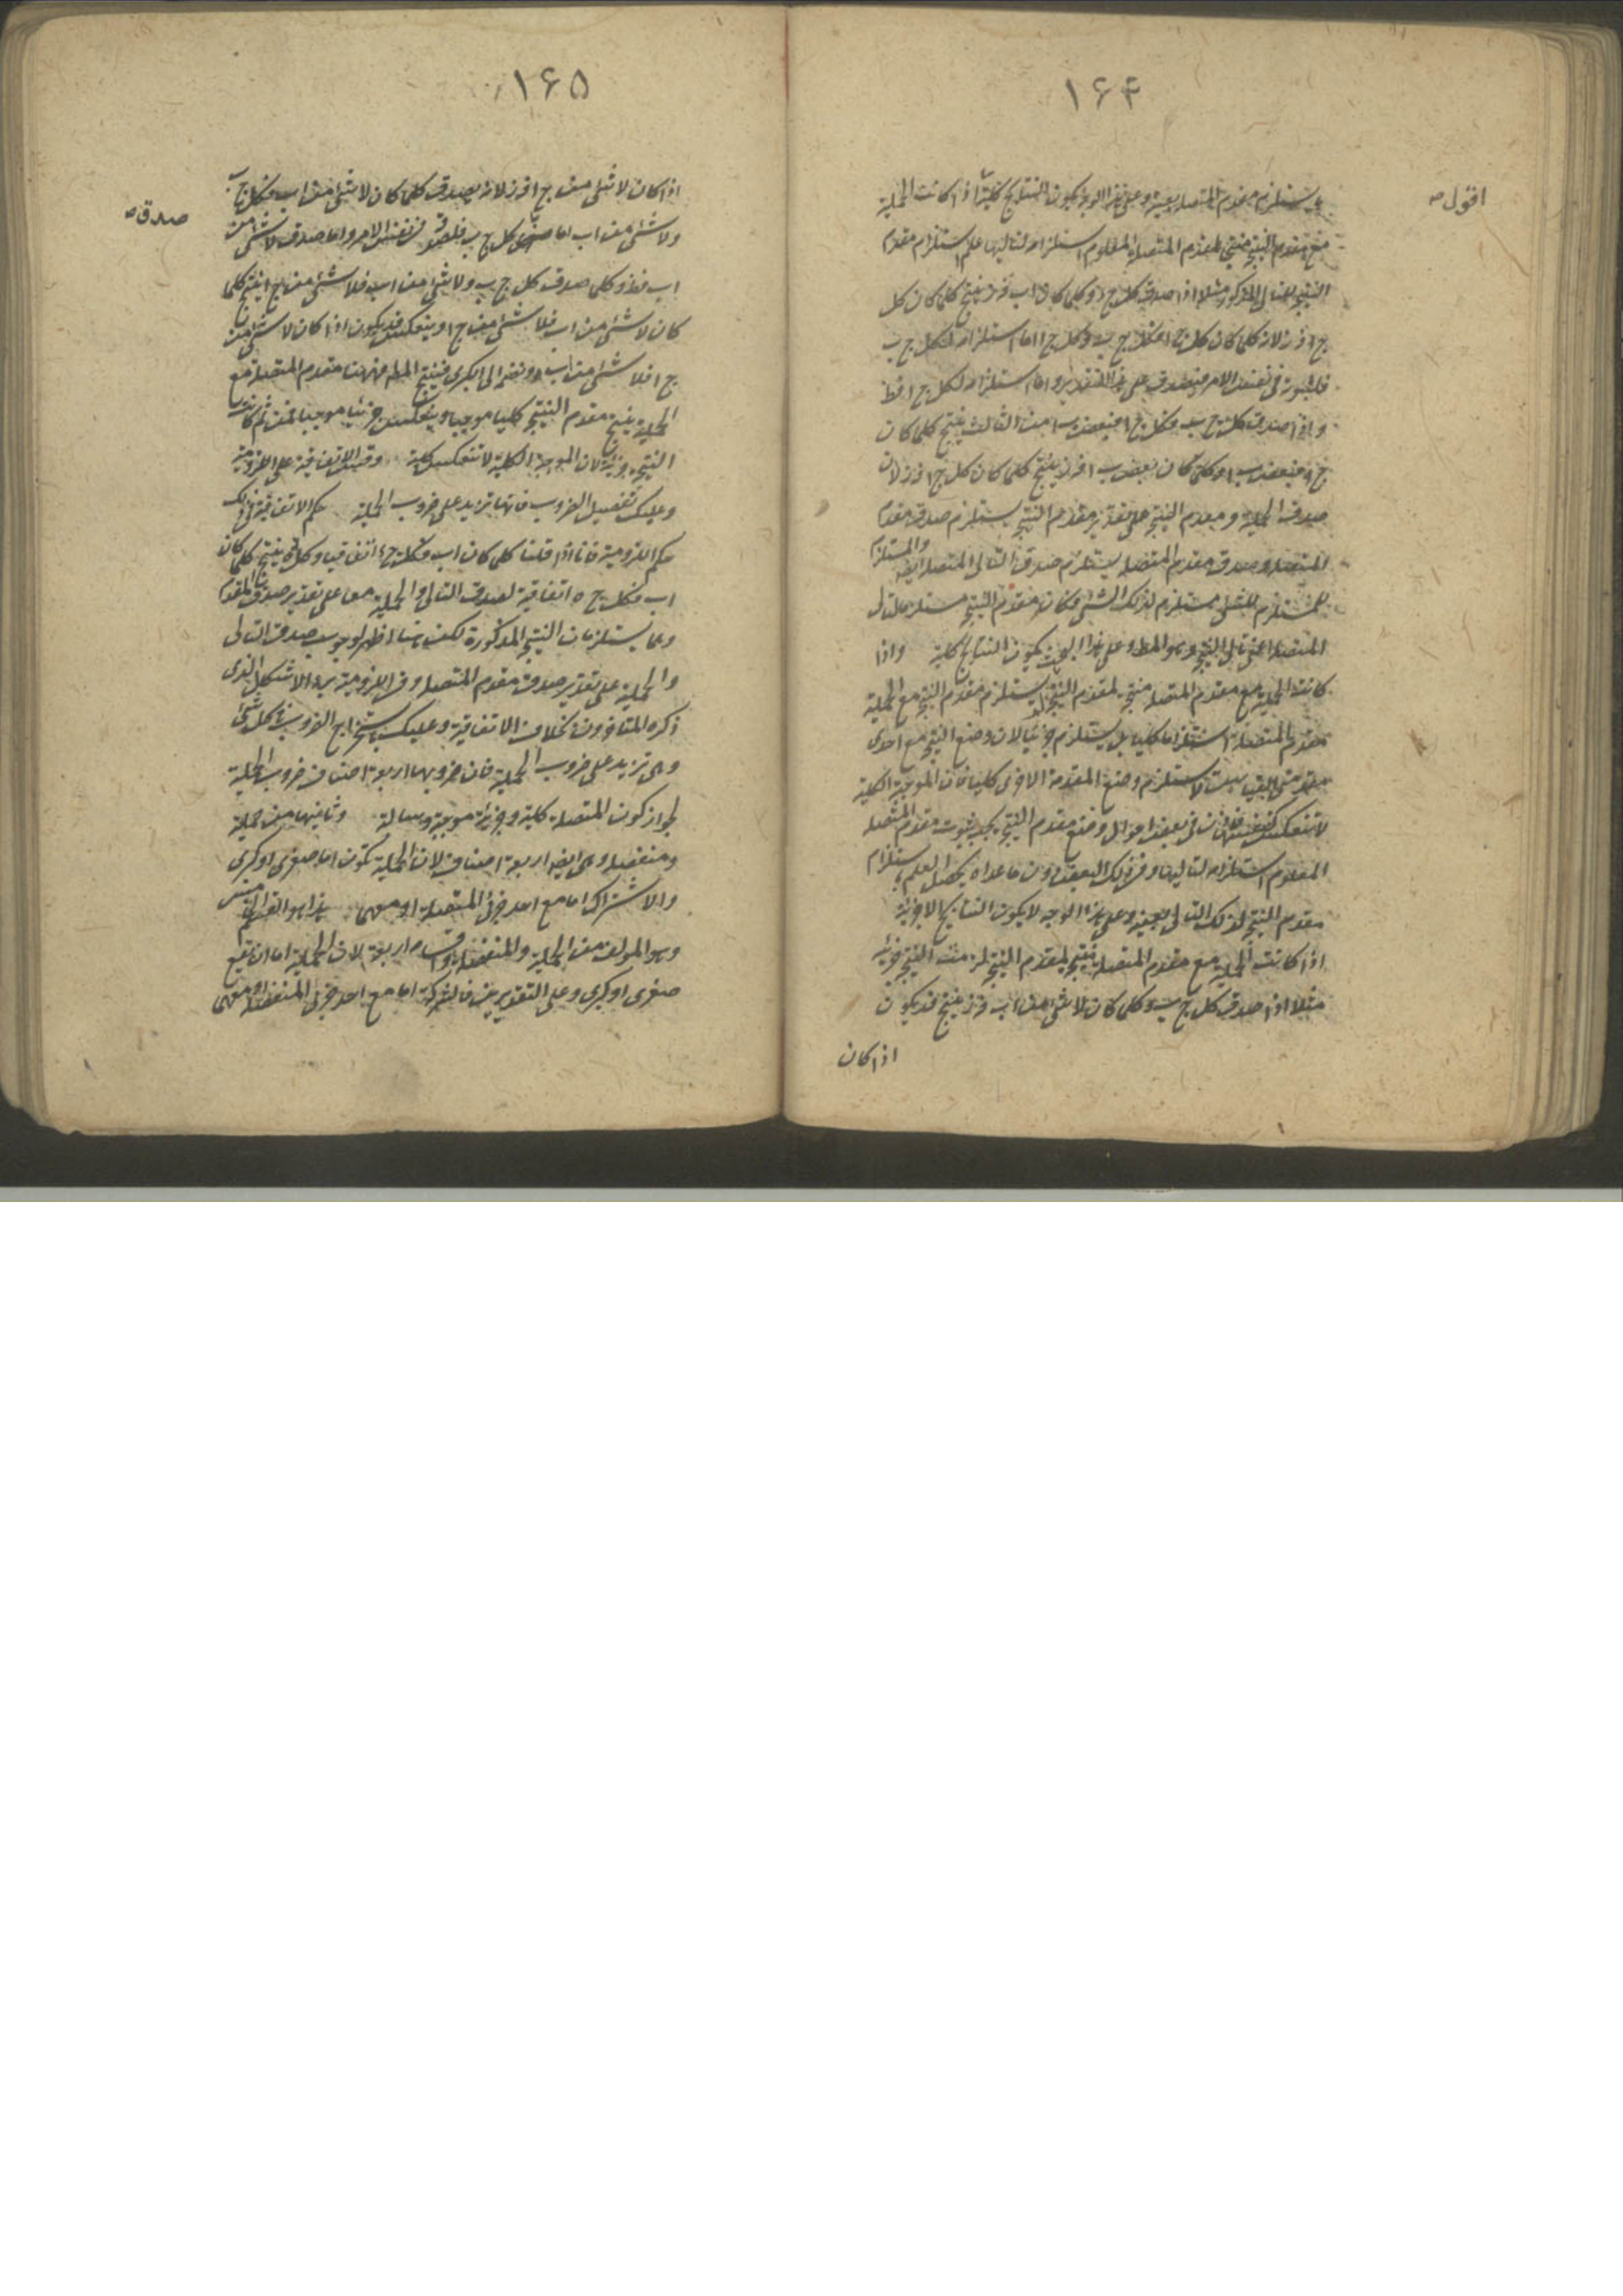 ۱۶۴
اقول
يستلزم مقدم المتصلة بعينه وعلى هذا الوجه يكون النتايج كلية اذا كانت الحملية
مع مقدم النتيجة منتج لمقدم المتصلة المعلوم استلزامه لتاليها علم استلزام مقدم
النتيجة للتالى المذكور مثلا اذا صدق كل ج ب وكلما كان اب فه ز ينتج كلما كان كل
ج ا فه ز لانه كلما كان كل ج ا فكل ج ب وكل ج ا اما استلزامه لكل ج ب
فلثبوته فى نفس الامر فيصدق على هذا التقدير واما استلزامه لكل ج ا فظ
واذا صدق كل ج ب وكل ج ا فبعض ب ا من الثالث ينتج كلما كان
ج ا فبعض ب ا وكلما كان بعض ب ا فه ز ينتج كلما كان كل ج ا فه ز لان
صدق الحملية ومقدم النتيجة على تقدير مقدم النتيجة يستلزم صدق مقدم
المتصلة وصدق مقدم المتصلة يستلزم صدق التالى المتصلة ايضا والمستلزم
للمستلزم للشئ مستلزم لذلك الشئ فكان مقدم النتيجة مستلزما لتالى
المتصلة اعنى تالى النتيجة وهو المط وعلى هذا البحث يكون النتايج كلية واذا
كانت الحملية مع مقدم المتصلة منتجة لمقدم النتيجة لم يستلزم مقدم النتيجة مع الحملية
مقدم المتصلة استلزاما كليا بل يستلزم جزئيا لان وضع النتيجة مع احدى
مقدمتى القياس لا يستلزم وضع المقدمة الاخرى كليا فان الموجبة الكلية
لا تنعكس كنفسها فان فى بعض احوال وضع مقدم النتيجة يجب ثبوت مقدم المتصلة
المعلوم استلزامه لتاليها وفى ذلك البعض دون ما عداه يحصل العلم باستلزام
مقدم النتيجة لذلك التالى بعينه وعلى هذا الوجه لا يكون النتايج الا جزئية
اذا كانت الحملية مع مقدم المتصلة ينتج لمقدم النتيجة لزمت النتيجة جزئية
مثلا اذا صدق كل ج ب وكلما كان لا شئ من اب فه ز ينتج قد يكون
اذا كان
۱۶۵
صدق
اذا كان لا شئ من ج ا فه ز لانه يصدق كلما كان لا شئ من اب فكل ج ب
ولا شئ من اب اما صدق كل ج ب فلصدقه فى نفس الامر واما صدق لا شئ من
اب فظ وكلما صدق كل ج ب ولا شئ من اب فلا شئ من ج ا ينتج كلما
كان لا شئ من اب فلا شئ من ج ا وينعكس قد يكون اذا كان لا شئ من
ج ا فلا شئ من اب ونضم الى الكبرى فينتج المط فههنا مقدم المتصلة مع
الحملية ينتج مقدم النتيجة كليا موجبا وينعكس جزئيا موجبا فمن ثم كانت
النتيجة جزئية لان الموجبة الكلية لا تنعكس كلية وقس الاتفاقية على اللزومية
وعليك تفصيل الضروب فانها تزيد على ضروب الحملية حكم الاتفاقية فى ذلك
حكم اللزومية فانا اذا قلنا كلما كان اب فكل ج د اتفاقيا وكل د ه ينتج كلما كان
اب فكل ج ه اتفاقية لصدق التالى والحملية معا على تقدير صدق المقدم
وهما يستلزمان النتيجة المذكورة لكنه ههنا اظهر لوجوب صدق التالى
والحملية على تقدير صدق مقدم المتصلة وفى اللزومية يرد الاشكال الذى
ذكره المتاخرون بخلاف الاتفاقية وعليك باستخراج الضروب فى كل شئ
وهى تزيد على ضروب الحملية فان ضروبها اربعة اصناف ضروب الحملية
لجواز كون المتصلة كلية وجزئية موجبة وسالبة وثانيها من حملية
ومنفصلة وهى ايضا اربعة اصناف لان الحملية تكون اما صغرى او كبرى
والاشتراك اما مع احد جزئى المتصلة او معهما هذا هو القسم الخامس
وهو المولف من الحملية والمنفصلة واقسامه اربعة لان الحملية اما ان تقع
صغرى او كبرى وعلى التقديرين فالشركة اما مع احد جزئى المنفصلة او معهما